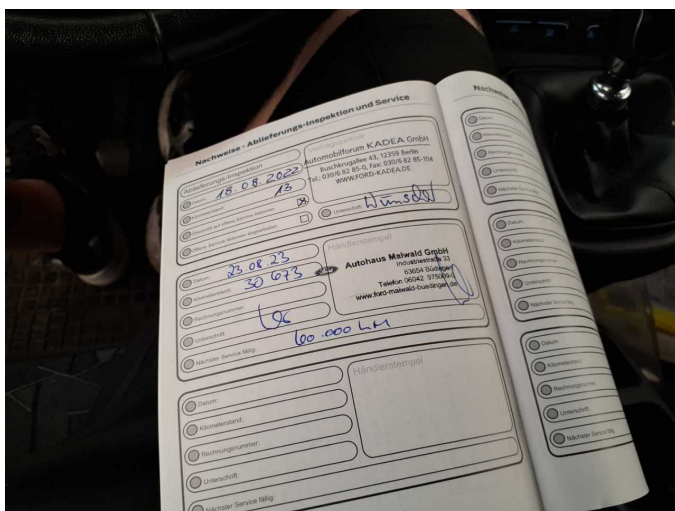 Nachweise - Ablieferungs-Inspektion und Service
Ablieferungs-Inspektion
Datum: 18.08.2022
Kilometerstand: 13
Überprüft auf offene Service Aktionen:
offene Service Aktionen abgearbeitet:
Vertragspartner
Automobilforum KADEA GmbH
Buschkrugallee 43, 12359 Berlin
Tel.: 030/6 82 85-0, Fax: 030/6 82 85-104
WWW.FORD-KADEA.DE
Unterschrift:
Datum: 23.08.23
Kilometerstand: 30 673
Rechnungsnummer:
Unterschrift:
Nächster Service fällig: 60.000 km
Händlerstempel
Autohaus Maiwald GmbH
Industriestraße 33
63654 Büdingen
Telefon 06042
www.ford-maiwald-buedingen.de
Datum:
Kilometerstand:
Rechnungsnummer:
Unterschrift:
Nächster Service fällig:
Händlerstempel
Datum
Kilometerstand
Rechnungsnummer
Unterschrift
Datum
Kilometerstand
Rechnungsnummer
Unterschrift
Nächster Service fällig
Datum
Kilometerstand
Rechnungsnummer
Unterschrift
Nächster Service fällig